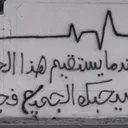 ندما يستقيم هذا الخ
سيحبك الجميع فج